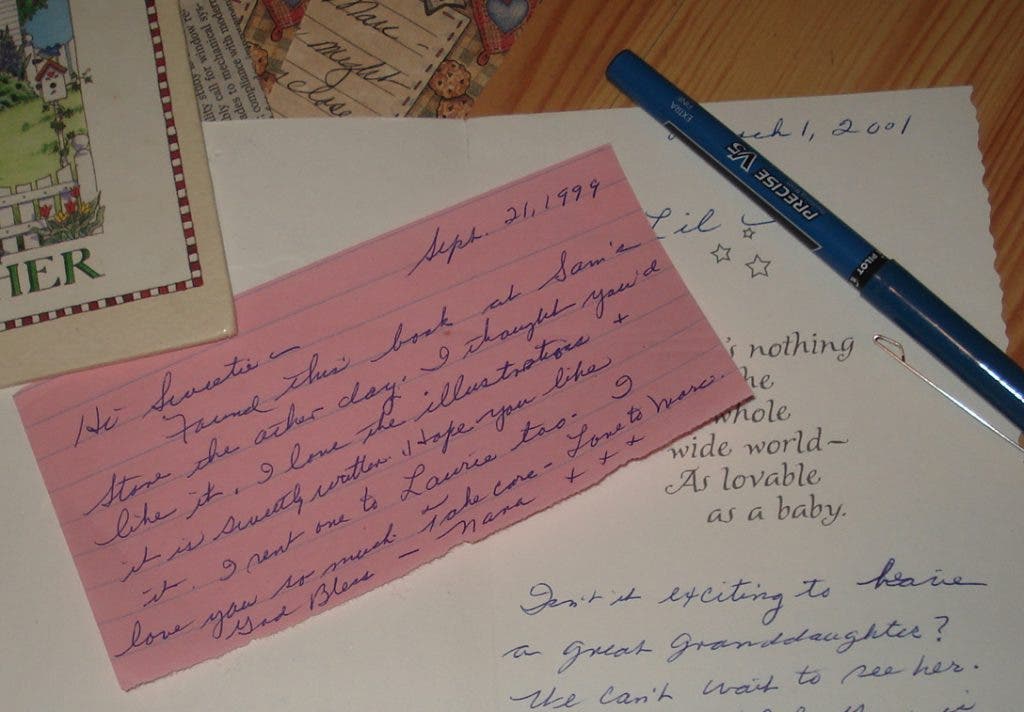 HER
compliance with modern
ades to mechanical sys-
bly call for window
might
close
EXTRA
FINE
PRECISE V5
PILOT
ch 1, 2001
Lil ~
Sept. 21, 1999
Hi Sweetie ~
Found this book at Sam's
Store the other day. I thought you'd
like it. I love the illustrations +
it is sweetly written. I Hope you like
it. I sent one to Laurie too. I
love you so much. Take care - Love to Marc.
God Bless - Nana + + +
's nothing
he
whole
wide world—
As lovable
as a baby.
Isn't it exciting to have
a great granddaughter?
We can't wait to see her.